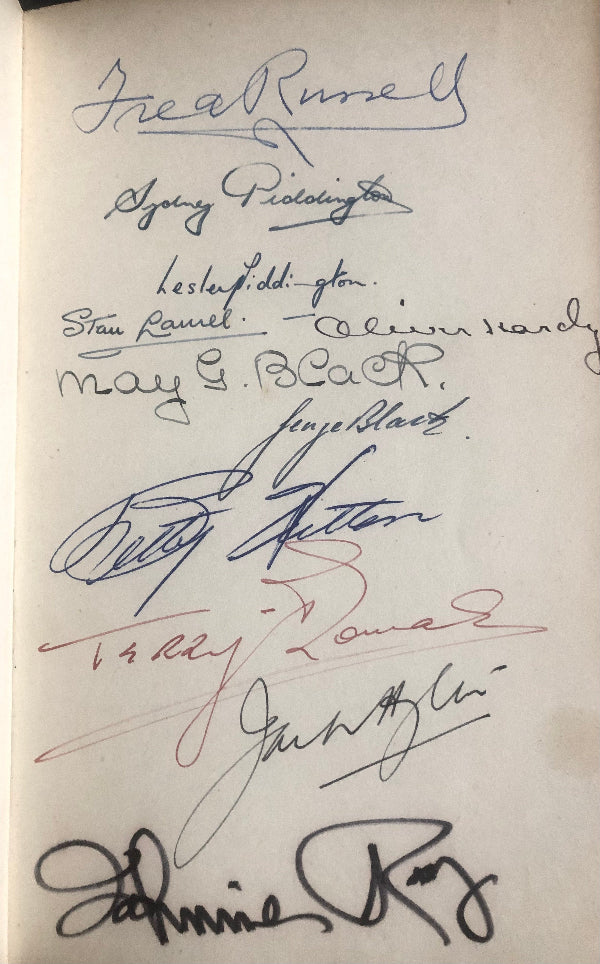 Fred Russell
Sydney Piddington
Lesley Piddington.
Stan Laurel. — Oliver Hardy
May G. Black.
George Black.
Betty Hutton
Terry-Thomas
Jack Hylton
Johnnie Ray